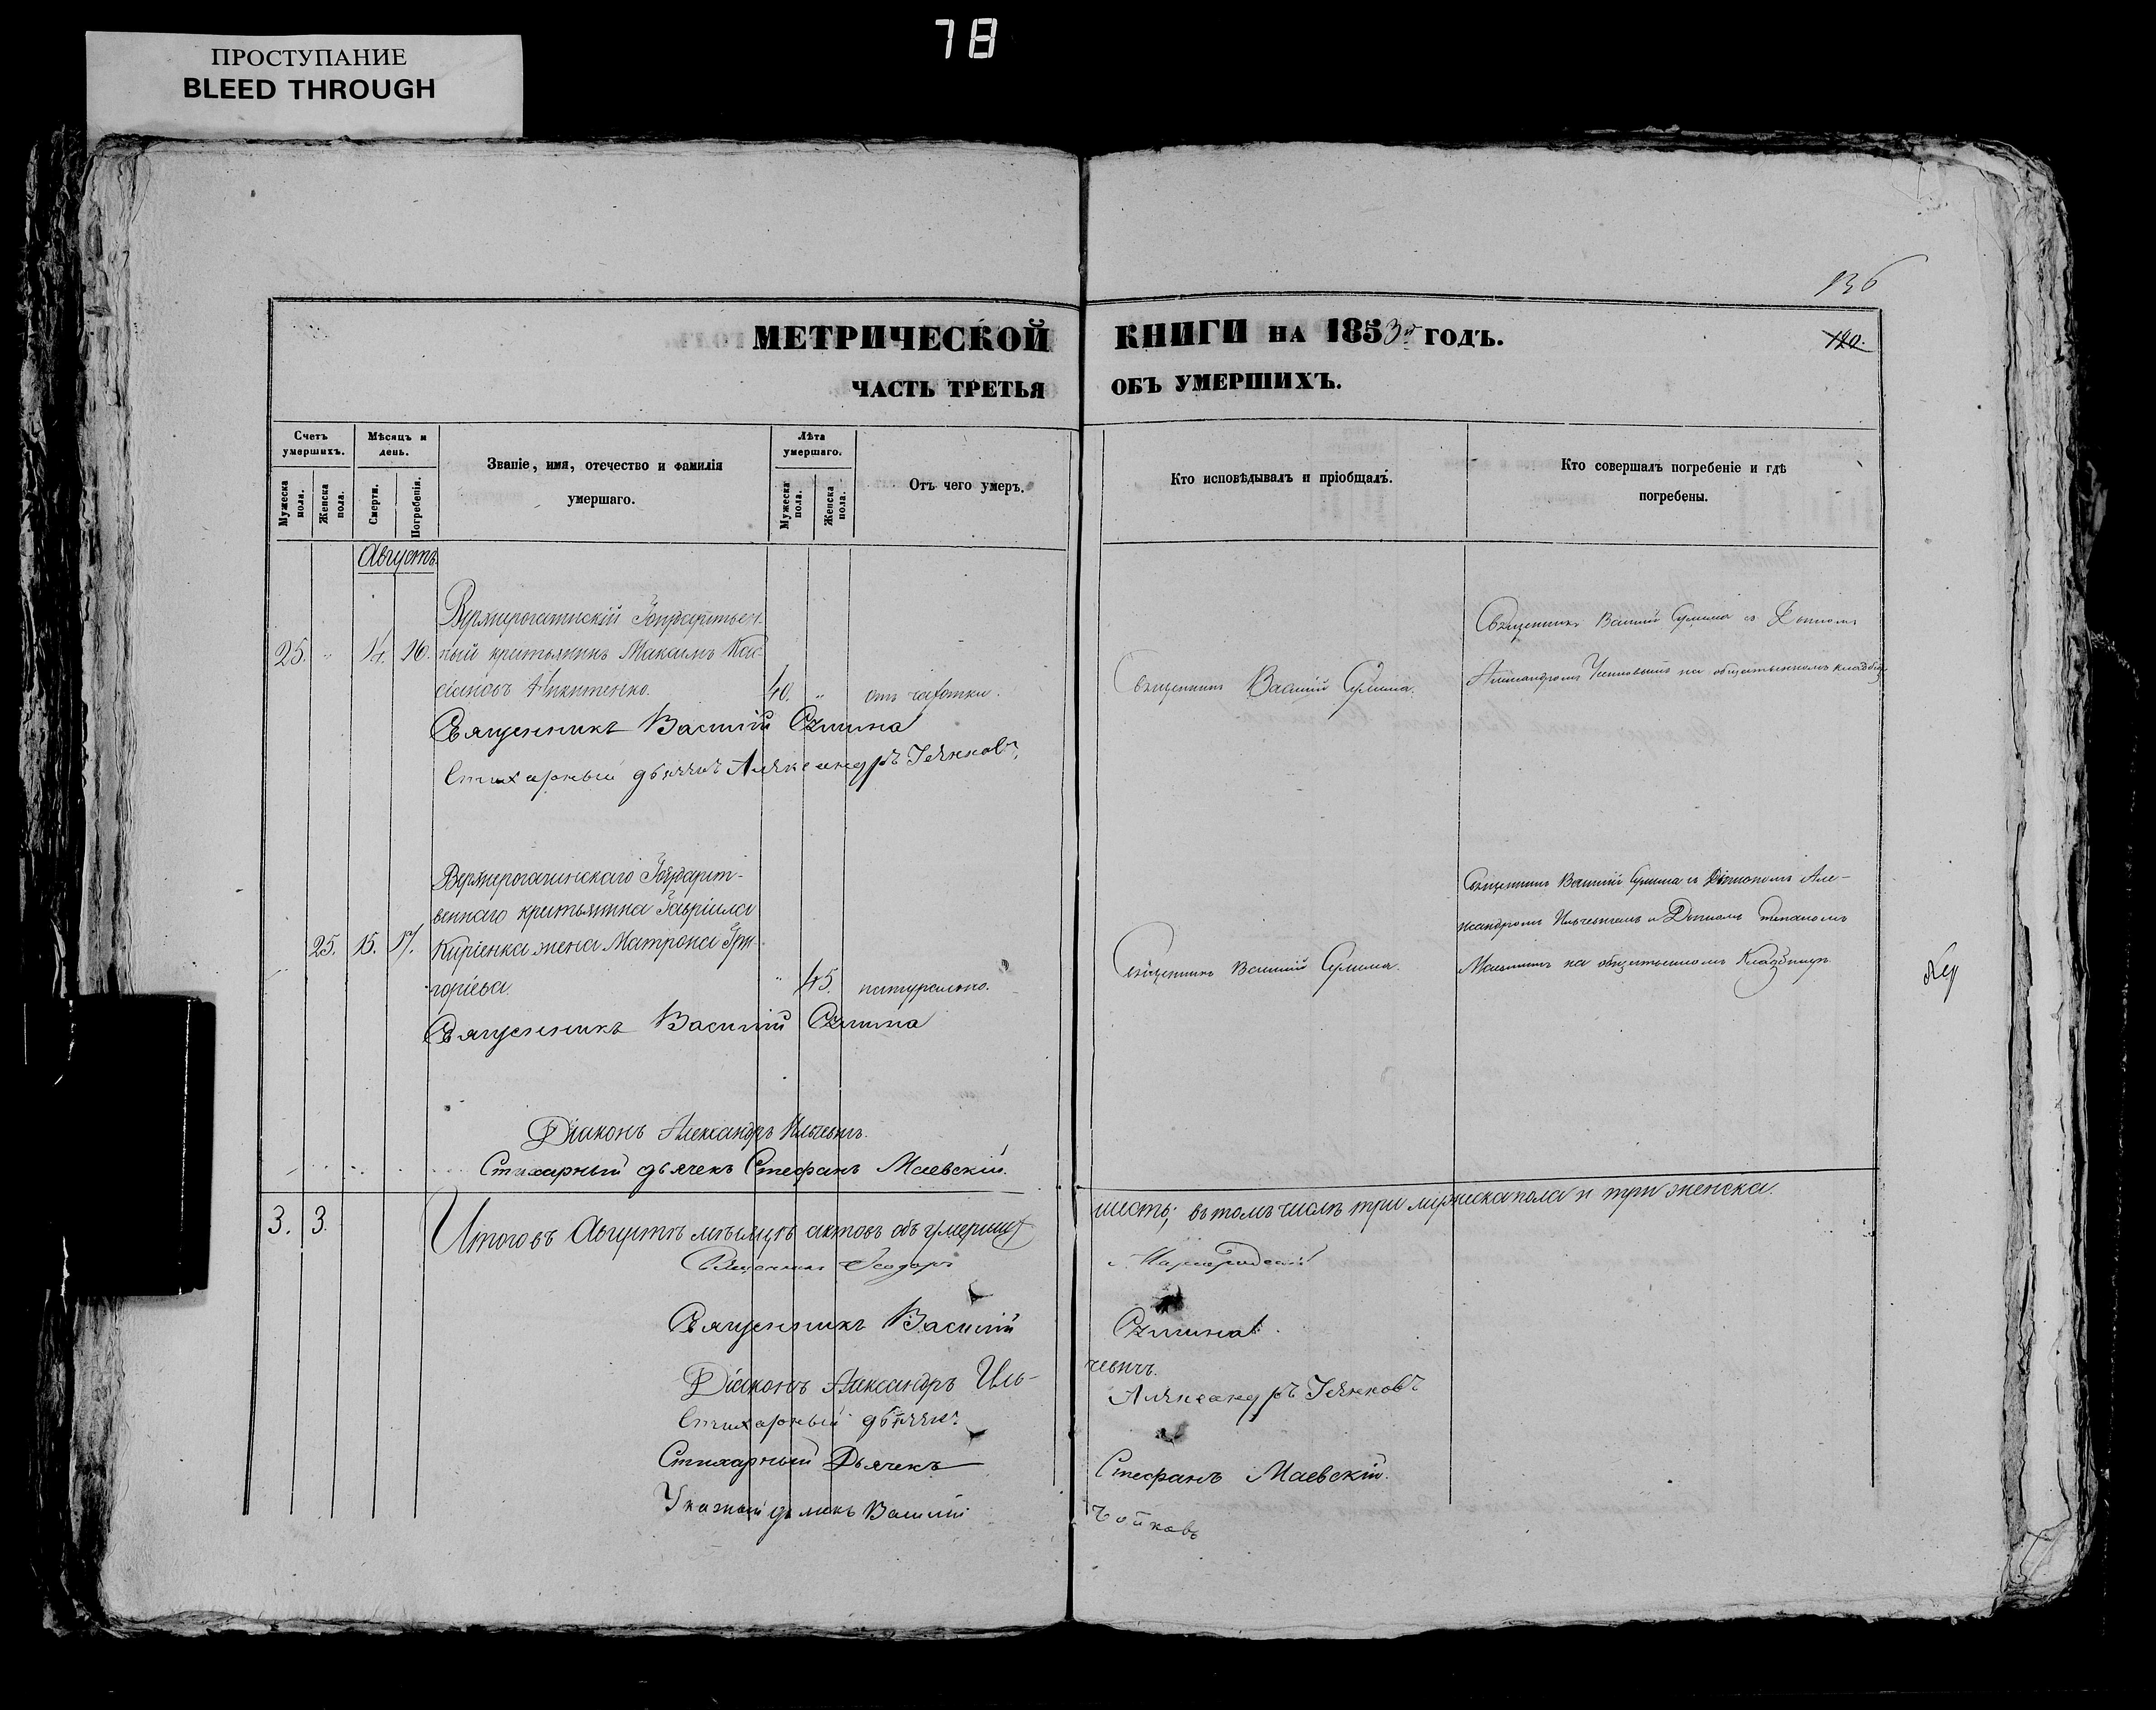 78
ПРОСТУПАНИЕ
BLEED THROUGH
136
МЕТРИЧЕСКОЙ КНИГИ НА 1853й ГОДЪ.
120.
ЧАСТЬ ТРЕТЬЯ ОБЪ УМЕРШИХЪ.
Счетъ умершихъ.
Мужеска пола.
Женска пола.
Мѣсяцъ и день.
Смерти.
Погребенія.
Званіе, имя, отечество и фамилія умершаго.
Лѣта умершаго.
Мужеска пола.
Женска пола.
Отъ чего умеръ.
Кто исповѣдывалъ и пріобщалъ.
Кто совершалъ погребеніе и гдѣ погребены.
Августъ.
Верхнерогачикскій Государствен-
25. 14. 16. ный крестьянинъ Максимъ Кас-
сіановъ Никитенко. 40. отъ чахотки.
Священникъ Василій Сулима.
Священникъ Василій Сулима с
Александромъ на общественномъ кладбищѣ
Священникъ Василій Сулима
Стихарный дьячекъ Александръ
Верхнерогачикскаго Государст-
веннаго крестьянина Гавріила
25. 15. 17. Киріенка жена Матрона Гри-
горіева. 45. натурально.
Священникъ Василій Сулима.
Священникъ Василій Сулима съ Діакономъ Але-
ксандромъ Ильчевичемъ и Стефаномъ
Маевскимъ на общественномъ Кладбищѣ.
Священникъ Василій Сулима
Діаконъ Александръ Ильчевичъ.
Стихарный дьячекъ Стефанъ Маевскій.
3. 3. Итого въ Августѣ мѣсяцѣ актовъ объ умершихъ шесть; въ томъ числѣ три мужеска пола и три женска.
Священникъ Ѳеодоръ
Священникъ Василій Сулима
Діаконъ Александръ Иль-
чевичъ.
Стихарный дьячекъ Александръ
Стихарный Дьячекъ Стефанъ Маевскій.
Указный дьячекъ Василій